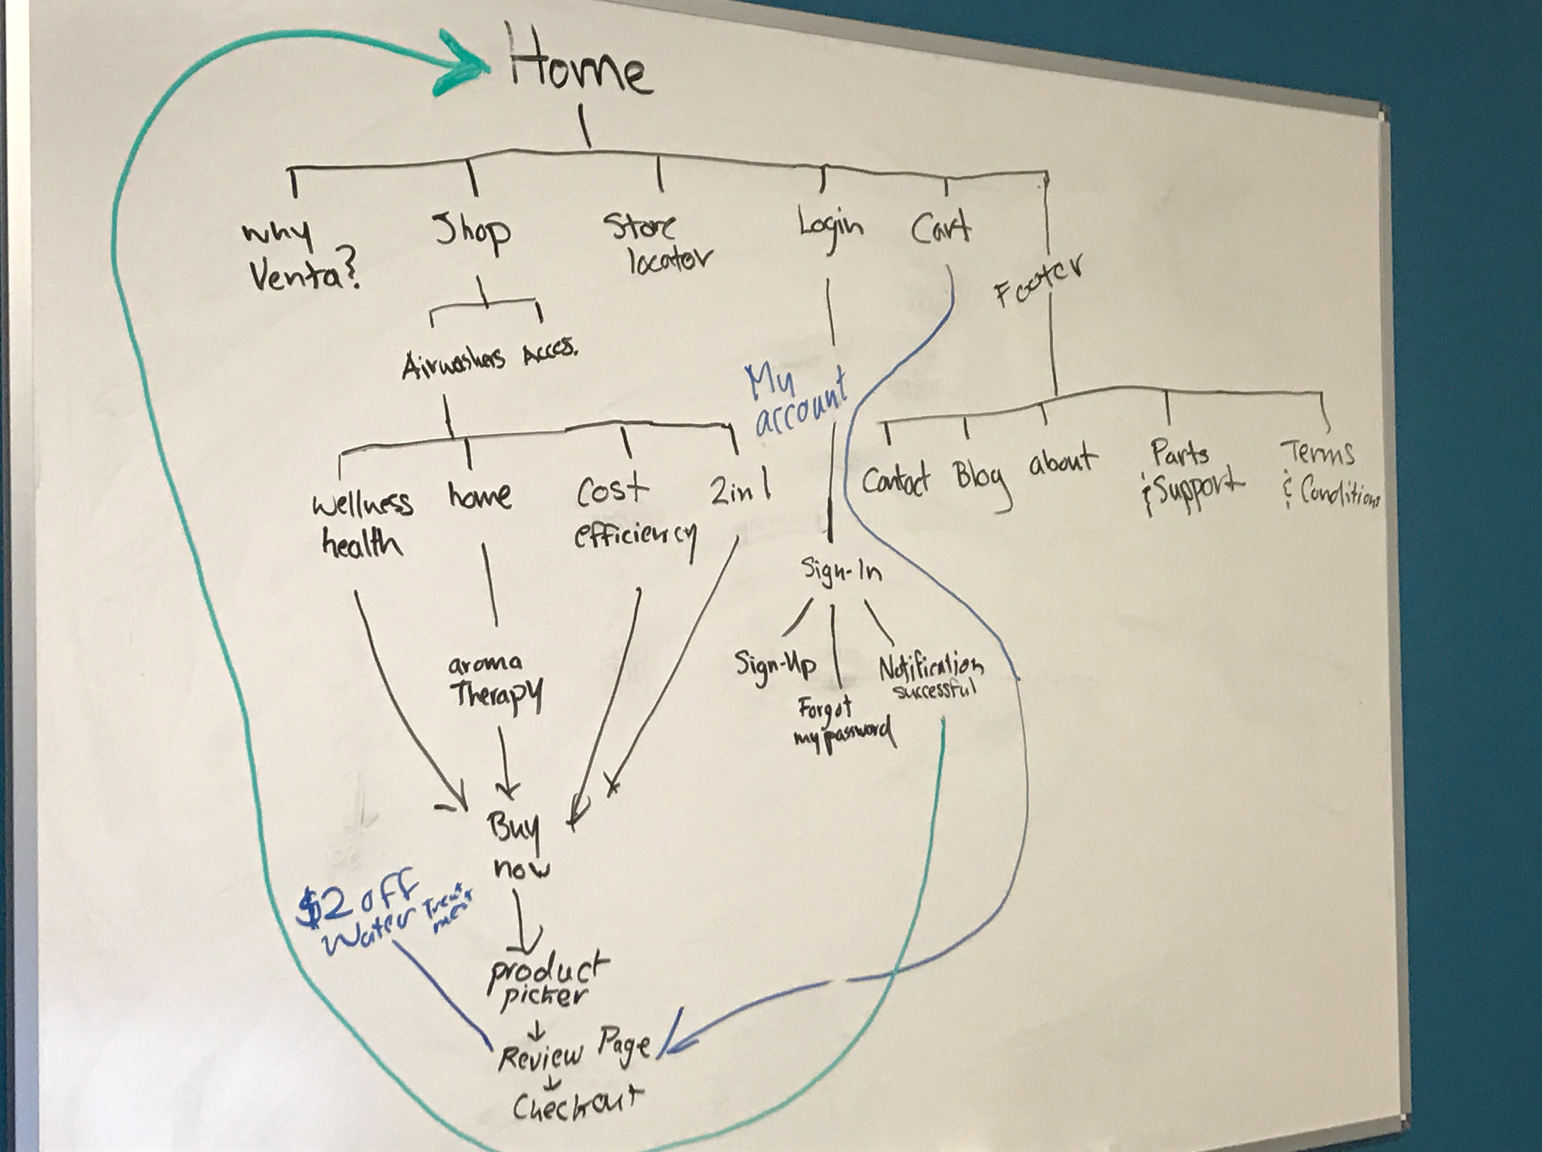 Home
why
Venta?
Shop
Store
locator
Login
Cart
Footer
Airwashers
Acces.
My
account
wellness
health
home
Cost
efficiency
2in1
Contact
Blog
about
Parts
& Support
Terms
& Conditions
Sign-In
aroma
Therapy
Sign-Up
Forgot
my password
Notification
successful
Buy
now
$2 off
Water Treat
ment
product
picker
Review Page
Checkout